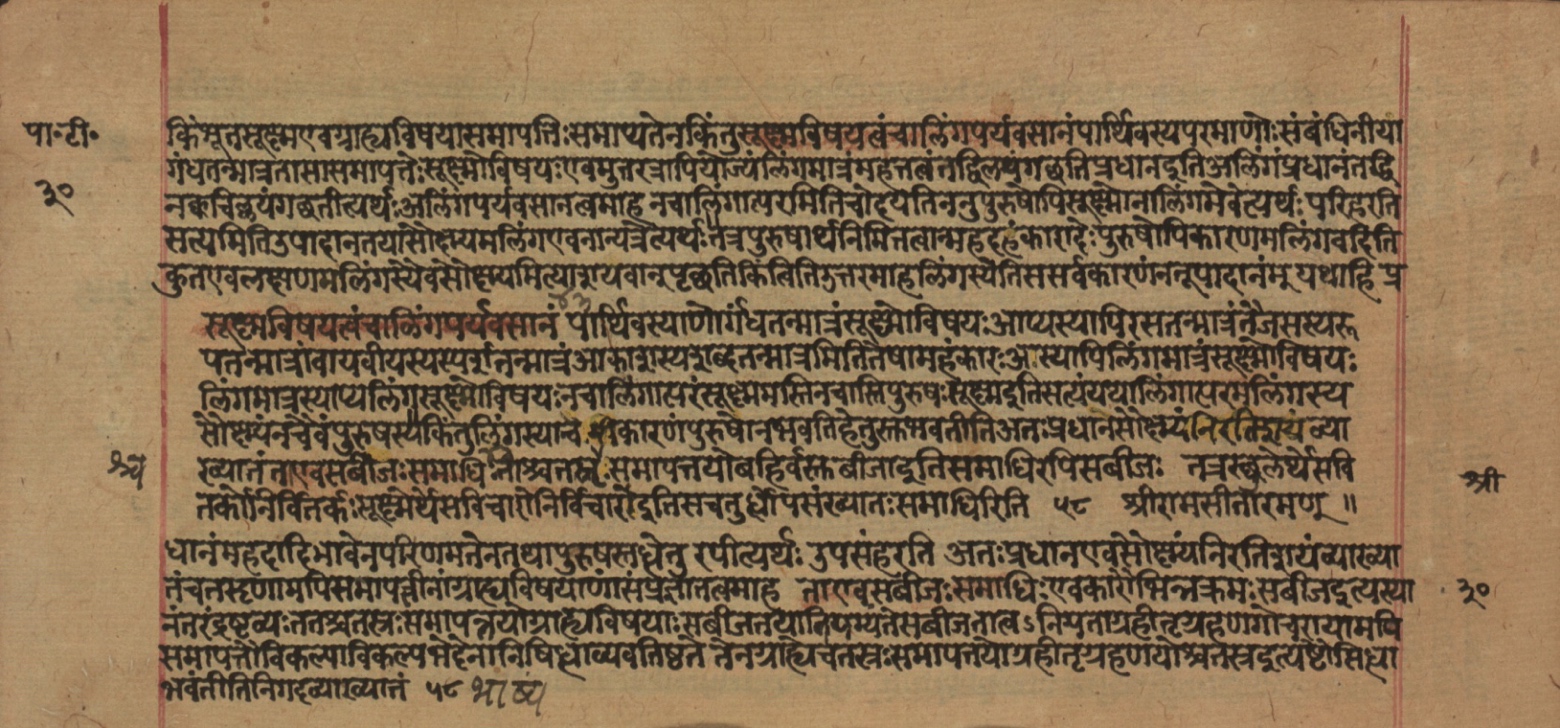 पा॰टी॰
३०
किंभूतसूक्ष्मएवग्राह्यविषयासमापत्तिःसमाप्यतेनकिंतुसूक्ष्मविषयत्वंचालिंगपर्यवसानंपार्थिवस्यपरमाणोःसंबंधिनीया
गंधतन्मात्रतासासमापत्तेःसूक्ष्मोविषयःएवमुत्तरत्रापियोज्यंलिंगमात्रंमहत्तत्वंतद्धिलयंगछतिप्रधानइतिअलिंगंप्रधानंतद्धि
नक्वचिल्लयंगछतीत्यर्थःअलिंगपर्यवसानत्वमाह नचालिंगात्परमितिचोदयतिननुपुरुषोपिसूक्ष्मोनालिंगमेवेत्यर्थः परिहरति
सत्यमितिउपादानतयासौक्ष्म्यमलिंगएवनान्यत्रेत्यर्थःतत्रपुरुषार्थनिमित्तत्वान्महदहंकारादेःपुरुषोपिकारणमलिंगवदिति
कुतएवलक्षणमलिंगस्यैवसौक्ष्म्यमित्याशयवान्पृछतिकिंत्वितिउत्तरमाहलिंगस्येतिससर्वकारणंननूपादानंमु यथाहि प्र
सूक्ष्मविषयत्वंचालिंगपर्यवसानं पार्थिवस्याणोर्गंधतन्मात्रंसूक्ष्मोविषयःआप्यस्यापिरसतन्मात्रंतैजसस्यरू
पतन्मात्रंवायवीयस्यस्पर्शतन्मात्रंआकाशस्यशब्दतन्मात्रमितितेषामहंकारःअस्यापिलिंगमात्रंसूक्ष्मोविषयः
लिंगमात्रस्याप्यलिंगसूक्ष्मोविषयःनचालिंगात्परंसूक्ष्ममस्तिनचास्तिपुरुषःसूक्ष्मइतिसत्यंयथालिंगात्परमलिंगस्य
सौक्ष्म्यंनचैवंपुरुषस्यकिंतुलिंगस्यान्व यीकारणंपुरुषोनभवतिहेतुस्तभवतीतिअतःप्रधानेसौक्ष्म्यंनिरतिशयं व्या
ख्यातं ताएवसबीजःसमाधि ताश्चतस्रःसमापत्तयोबहिर्वस्तबीजाइतिसमाधिरपिसबीजः तत्रस्थूलेर्थेसवि
तर्कोनिर्वितर्कःसूक्ष्मेर्थेसविचारोनिर्विचारोइतिसचतुर्द्धोपसंख्यातःसमाधिरिति ५८ श्रीरामसीतारमण ॥
श्री
धानंमहदादिभावेनपरिणमतेनतथापुरुषस्तद्धेतु रपीत्यर्थः उपसंहरति अतःप्रधानएवसौक्ष्म्यंनिरतिशयंव्याख्या
तंचतसृणामपिसमापत्तीनांग्राह्यविषयाणांसंप्रज्ञातत्वमाह ताएवसबीजःसमाधिःएवकारोभिन्नक्रमःसबीजइत्यस्या
३०
नंतरंद्रष्टव्यःततश्चतस्रःसमापत्तयोग्राह्यविषयाःसबीजतयानियम्यंतेसबीजतात्व ऽ नियताग्रहीतृग्रहणगोचरायामपि
समापत्तौविकल्पाविकल्पभेदेनानिषिद्धाव्यवतिष्ठते तेनग्राह्येचतस्रःसमापत्तयोग्रहीतृग्रहणयोश्चतस्रइत्यष्टौसिद्धा
भवंतीतिनिगदव्याख्यातं ५८ भाष्य